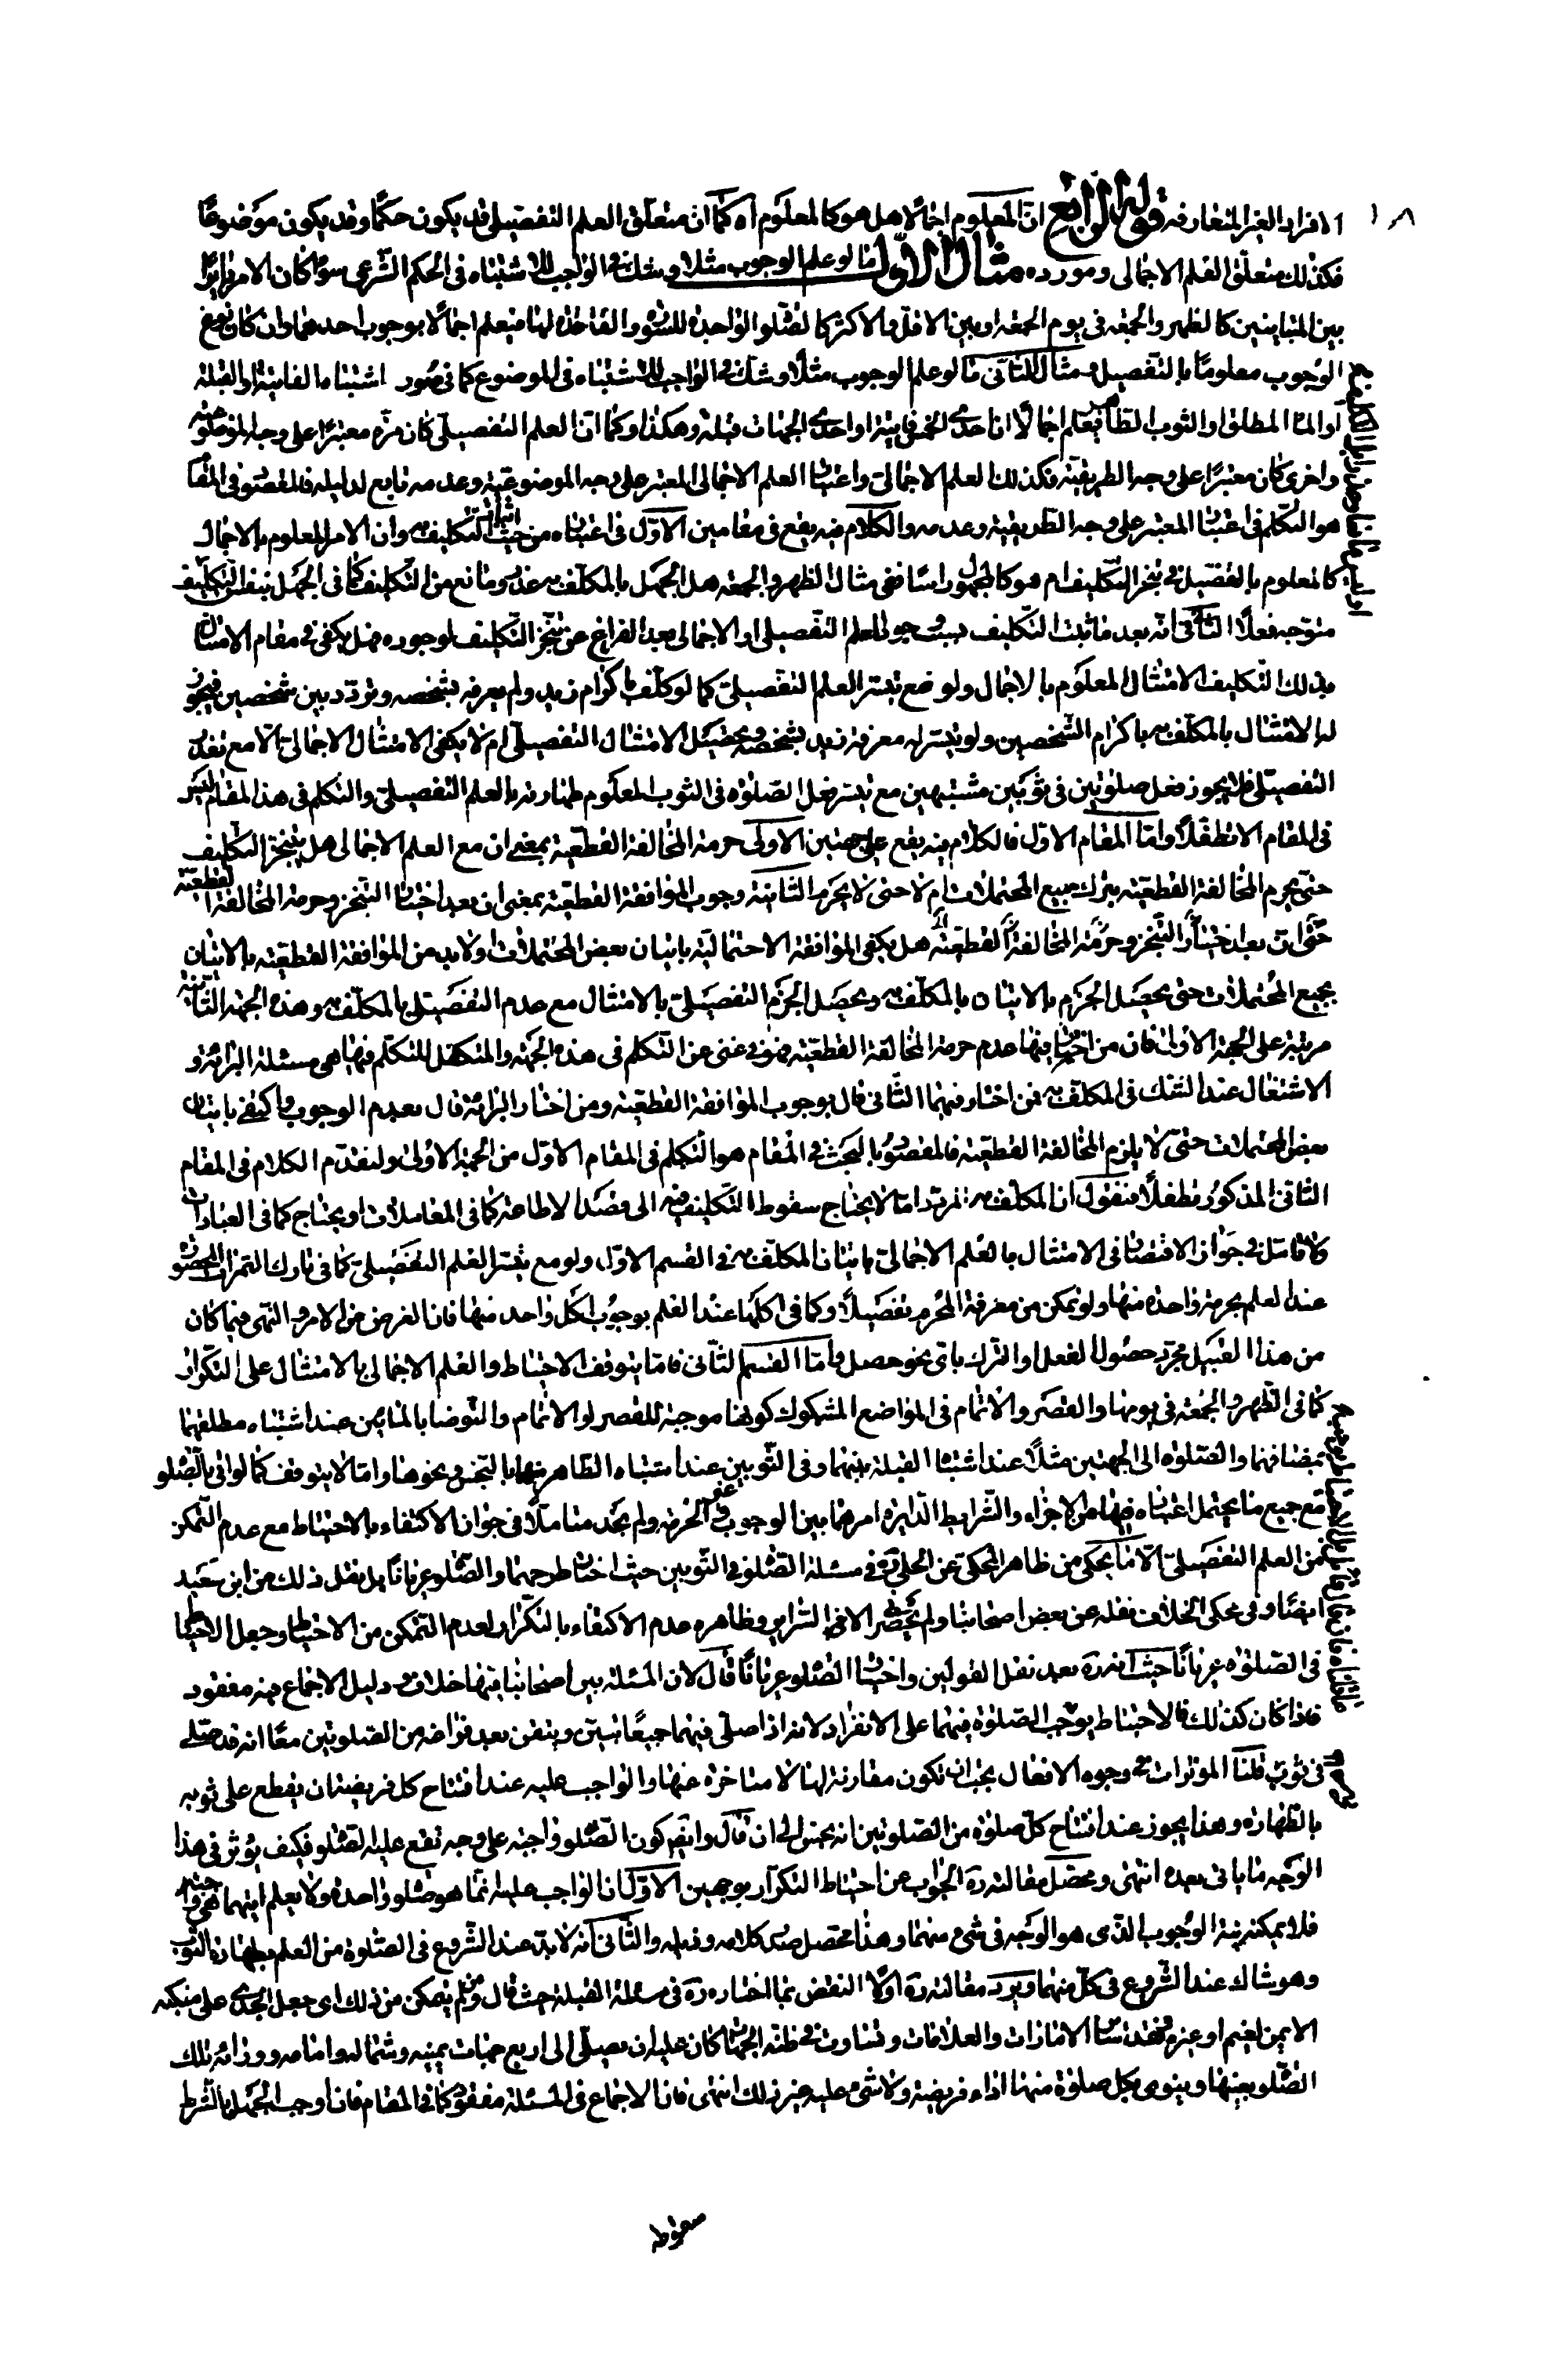 ١٨
الافراد الغير المتعارفة قوله الرابع انّ المعلوم اجمالا هل هو كالمعلوم آه كما ان متعلّق العلم التفصيلى قد يكون حكمًا وقد يكون موضوعًا
فكذلك متعلّق العلم الاجمالى ومورده مثال الاول ما لو علم الوجوب مثلا وشك فى الواجب للاشتباه فى الحكم الشّرعى سواء كان الامر دايرًا
بين المتباينين كالظهر والجمعة فى يوم الجمعة او بين الاقل والاكثر كالصّلوة الواجدة للسّورة والفاقدة لها فيعلم اجمالًا بوجوب احدهما وان كان نوع
الوجوب معلومًا بالتّفصيل ومثال الثانى ما لو علم الوجوب مثلًا وشك فى الواجب للاشتباه فى الموضوع كما فى صور اشتباه الفايتة او القبلة
او الماء المطلق والثوب الطّاهر فيعلم اجمالًا ان احدى الخمس فايتة او احدى الجهات قبلة وهكذا وكما انّ العلم التفصيلى كان مرّة معتبرًا على وجه الموضوعيّة
واخرى كان معتبرًا على وجه الطريقيّة فكذلك العلم الاجمالى واعتبار العلم الاجمالى المعتبر على وجه الموضوعيّة وعدمه تابع لدليله فالمقصود فى المقام
هو التكلّم فى اعتبار المعتبر على وجه الطّريقيّة وعدمه والكلام فيه يقع فى مقامين الاوّل فى اعتباره من حيث اثبات التكليف به وان الامر المعلوم بالاجمال
كالمعلوم بالتفصيل فى تنجز التّكليف ام هو كالمجهول راسًا ففى مثال الظهر والجمعة هل الجهل بالمكلّف به عذر ومانع من التّكليف كما فى الجهل بنفس التّكليف
متوجه فعلًا الثّانى انّه بعد ما ثبت التّكليف بسبب حصول العلم التّفصيلى او الاجمالى بعد الفراغ عن تنجّز التّكليف لوجوده فهل يكفى فى مقام الامتثال
بذلك التّكليف الامتثال المعلوم بالاجمال ولو مع تيسّر العلم التّفصيلىّ كما لو كلّف باكرام زيد ولم يعرفه بشخصه وتردّد بين شخصين فيجوز
له الامتثال بالمكلّف به باكرام الشّخصين ولو تيسّر له معرفة زيد بشخصه وتحصيل الامتثال التفصيلى ام لا يكفى الامتثال الاجمالى الّا مع تعذّر
التفصيلى فلا يجوز فعل صلوتين فى ثوبين مشتبهين مع تيسّر فعل الصّلوة فى الثوب المعلوم طهارته بالعلم التّفصيلى والتكلّم فى هذا المقام ليس
فى المقام الا تطفّلًا وامّا المقام الاوّل فالكلام فيه يقع على جهتين الاولى حرمة المخالفة القطعيّة بمعنى ان مع العلم الاجمالى هل يتنجّز التّكليف
حتّى يحرم المخالفة القطعيّة بترك جميع المحتملات ام لا حتى لا يحرم الثانية وجوب الموافقة القطعيّة بمعنى ان بعد اختيار التنجّز وحرمة المخالفة القطعيّة
هل يكفى الموافقة الاحتماليّة باتيان بعض المحتملات او لا بد من الموافقة القطعيّة بالاتيان
بجميع المحتملات حتى يحصل الجزم بالاتيان بالمكلّف به ويحصل الجزم التفصيلى بالامتثال مع عدم التفصيلى بالمكلّف به وهذه الجهة الثّانية
مرتبة على الجهة الاولى فان من اختار فيها عدم حرمة المخالفة القطعيّة فهو فى غنى عن التّكلم فى هذه الجهة والمتكفّل للتّكلّم فيها هى مسئلة البرائة و
الاشتغال عند الشّك فى المكلّف به فمن اختار فيهما الثّانى قال بوجوب الموافقة القطعيّة ومن اختار البرائة قال بعدم الوجوب واكتفى باتيان
بعض المحتملات حتّى لا يلزم المخالفة القطعيّة فالمقصود بالبحث فى المقام هو التّكلم فى المقام الاوّل من الجهة الاولى ولنقدّم الكلام فى المقام
الثانى المذكور تطفّلًا فنقول ان المكلّف به المردّد امّا لا يحتاج سقوط التّكليف فيه الى قصد الاطاعة كما فى المعاملات او يحتاج كما فى العبادات
ولا تامّل فى جواز الاقتصار فى الامتثال بالعلم الاجمالى باتيان المكلّف به فى القسم الاوّل ولو مع تيسّر العلم التّفصيلى كما فى تارك الثمرات المحصورة
عند العلم بحرمة واحدة منها ولو تمكن من معرفة المحرم تفصيلًا وكما فى اكلها عند العلم بوجوب اكل واحد منها فان الغرض من الامر والنّهى فيما كان
من هذا القبيل مجرّد حصول الفعل والترك باىّ نحو حصل وامّا القسم الثّانى فامّا يتوقف الاحتياط والعلم الاجمالى بالامتثال على التّكرار
كما فى الظّهر والجمعة فى يومها والقصر والاتمام فى المواضع المشكوك كونها موجبة للقصر او الاتمام والتّوضا بالمائين عند اشتباه مطلقهما
بمضافهما والصّلوة الى الجهتين مثلًا عند اشتباه القبلة بينهما وفى الثّوبين عند اشتباه الطّاهر منهما بالنّجس ونحوها وامّا لا يتوقف كما لو اتى بالصّلوة
مع جميع ما يحتمل اعتباره فيها من الاجزاء والشّرايط الدّايرة امرهما بين الوجوب وغير الحرمة ولم نجد متاملًا فى جواز الاكتفاء بالاحتياط مع عدم التّمكن
من العلم التّفصيلى الّا ما يحكى من ظاهر المحكى عن الحلّى ره فى مسئلة الصّلوة فى الثّوبين حيث اختار طرحهما والصّلوة عريانًا بل نقل ذلك من ابن سعيد
ايضًا وفى محكى الخلاف نقله عن بعض اصحابنا ولم يحضر الا فى السّراير وظاهره عدم الاكتفاء بالتّكرار لعدم التّمكن من الاحتياط وجعل الاحتياط
فى الصّلوة عريانًا حيث انه ره بعد نقل القولين واختيار الصّلوة عريانًا قال لان المسئلة بين اصحابنا فيها خلاف ودليل الاجماع فيه مفقود
فاذا كان كذلك فالاحتياط يوجب الصّلوة فيهما على الانفراد لانه اذا صلّى فيهما جميعًا تبيّن وتيقن بعد فراغه من الصّلوتين معًا انه قد صلّى
فى ثوب قلنا المؤثرات فى وجوه الافعال يجب ان تكون مقارنة لها لا متاخرة عنها والواجب عليه عند افتتاح كل فريضة ان يقطع على ثوبه
بالطّهارة وهذا يجوز عند افتتاح كلّ صلوة من الصّلوتين انه نجس الى ان قال وايضًا كون الصّلوة واجبة على وجه تقع عليه الصّلوة فكيف يؤثر فى هذا
الوجه ما ياتى بعده انتهى ومحصّل مقالته ره الجواب عن احتياط التّكرار بوجهين الاوّل ان الواجب عليه انما هو صلوة واحدة ولا يعلم ايتهما هى واجبة
فلا يمكنه نيّة الوجوب الذى هو الوجه فى شىء منهما وهذا محصل صدر كلامه وذيله والثّانى انّه لا بدّ عند الشّروع فى الصّلوة من العلم بطهارة الثّوب
وهو شاك عند الشّروع فى كلّ منهما ويرد مقالته ره اوّلًا النقض بما اختاره ره فى مسئلة القبلة حيث قال ومن لم يتمكن من ذلك اى جعل الجدى على منكبه
الايمن لغيم او غيره وفقد ساير الامارات والعلامات وتساوت فى ظنّه الجهات كان عليه ان يصلّى الى اربع جهات يمينه وشماله وامامه وورائه تلك
الصّلوة بعينها وينوى بكل صلوة منها اداء فريضة ولا شىء عليه غير ذلك انتهى فان الاجماع فى المسئلة مفقود كما فى المقام فان اوجب الجهل بالشّرط
سقوط